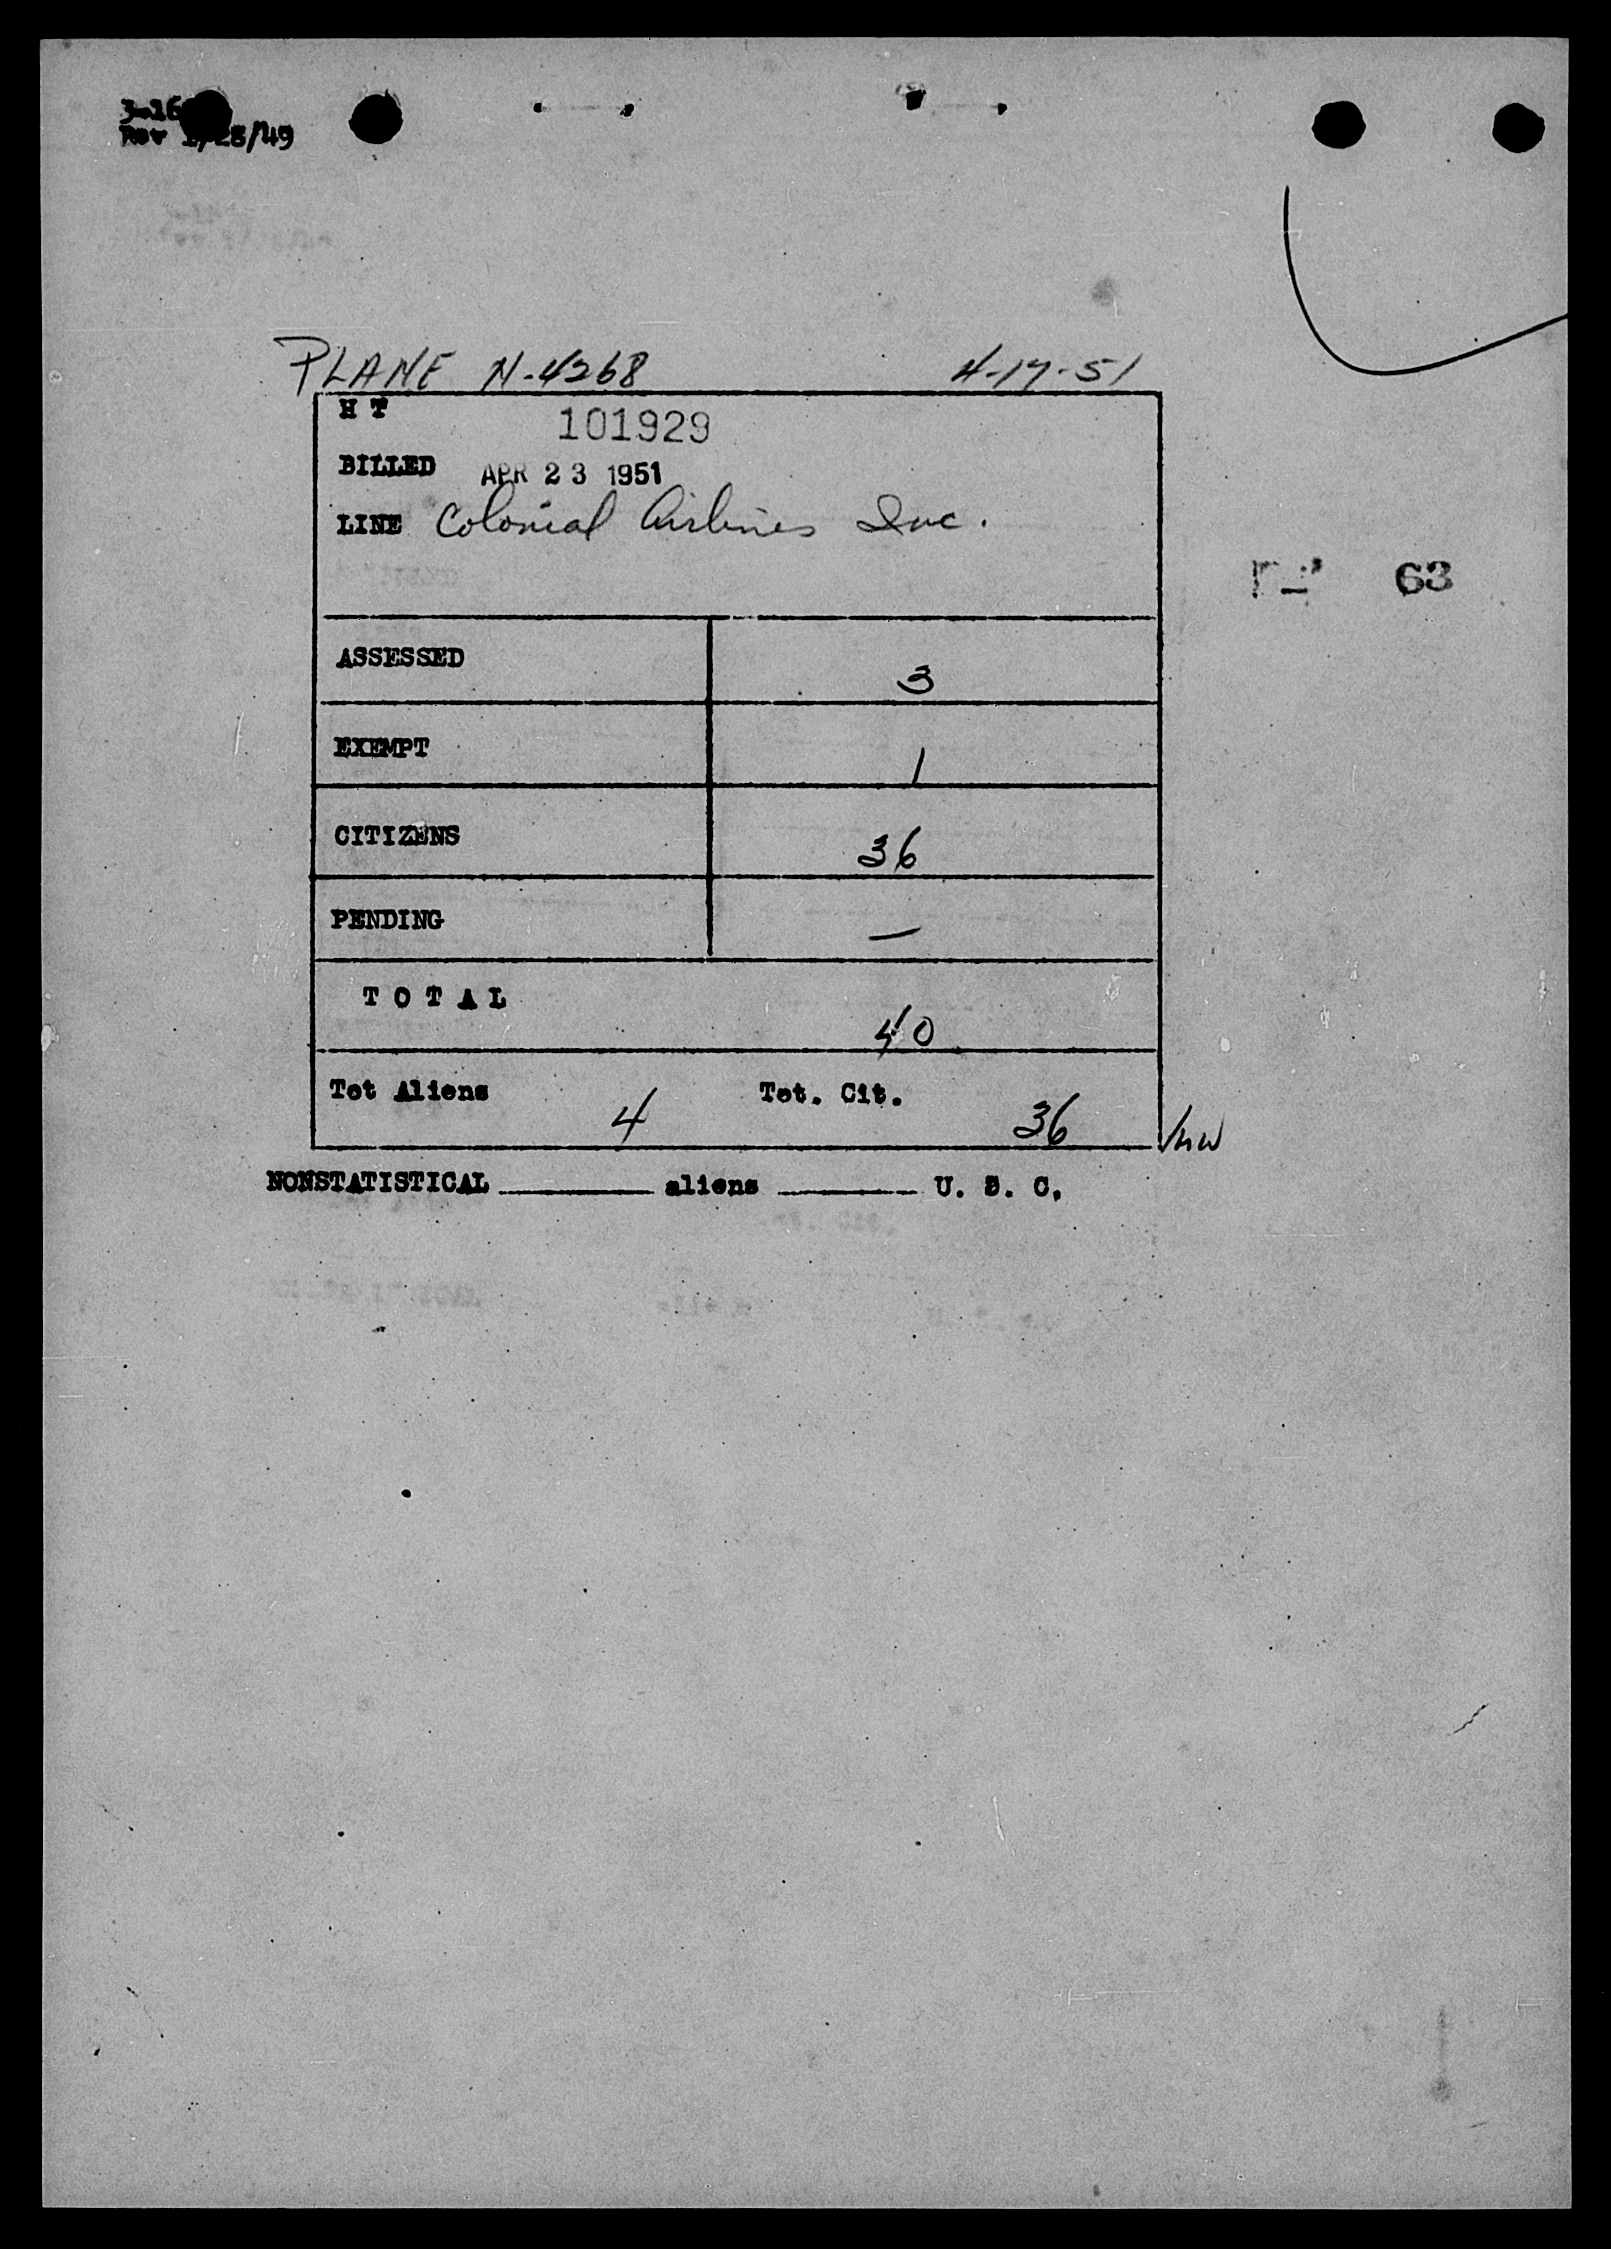 Rev 1/28/49
PLANE N-4268 4-17-51
H T 101929
BILLED APR 23 1951
LINE Colonial Airlines Inc.
63
ASSESSED 3
EXEMPT 1
CITIZENS 36
PENDING —
TOTAL 40
Tot Aliens 4 Tot. Cit. 36
NONSTATISTICAL ________ aliens ________ U. S. C.